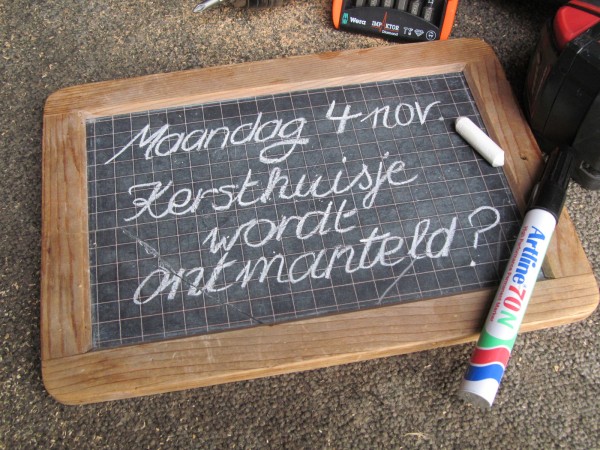 Wera IMPAKTOR
Diamond
Maandag 4 nov.
Kersthuisje
wordt
ontmanteld?
Artline 70N